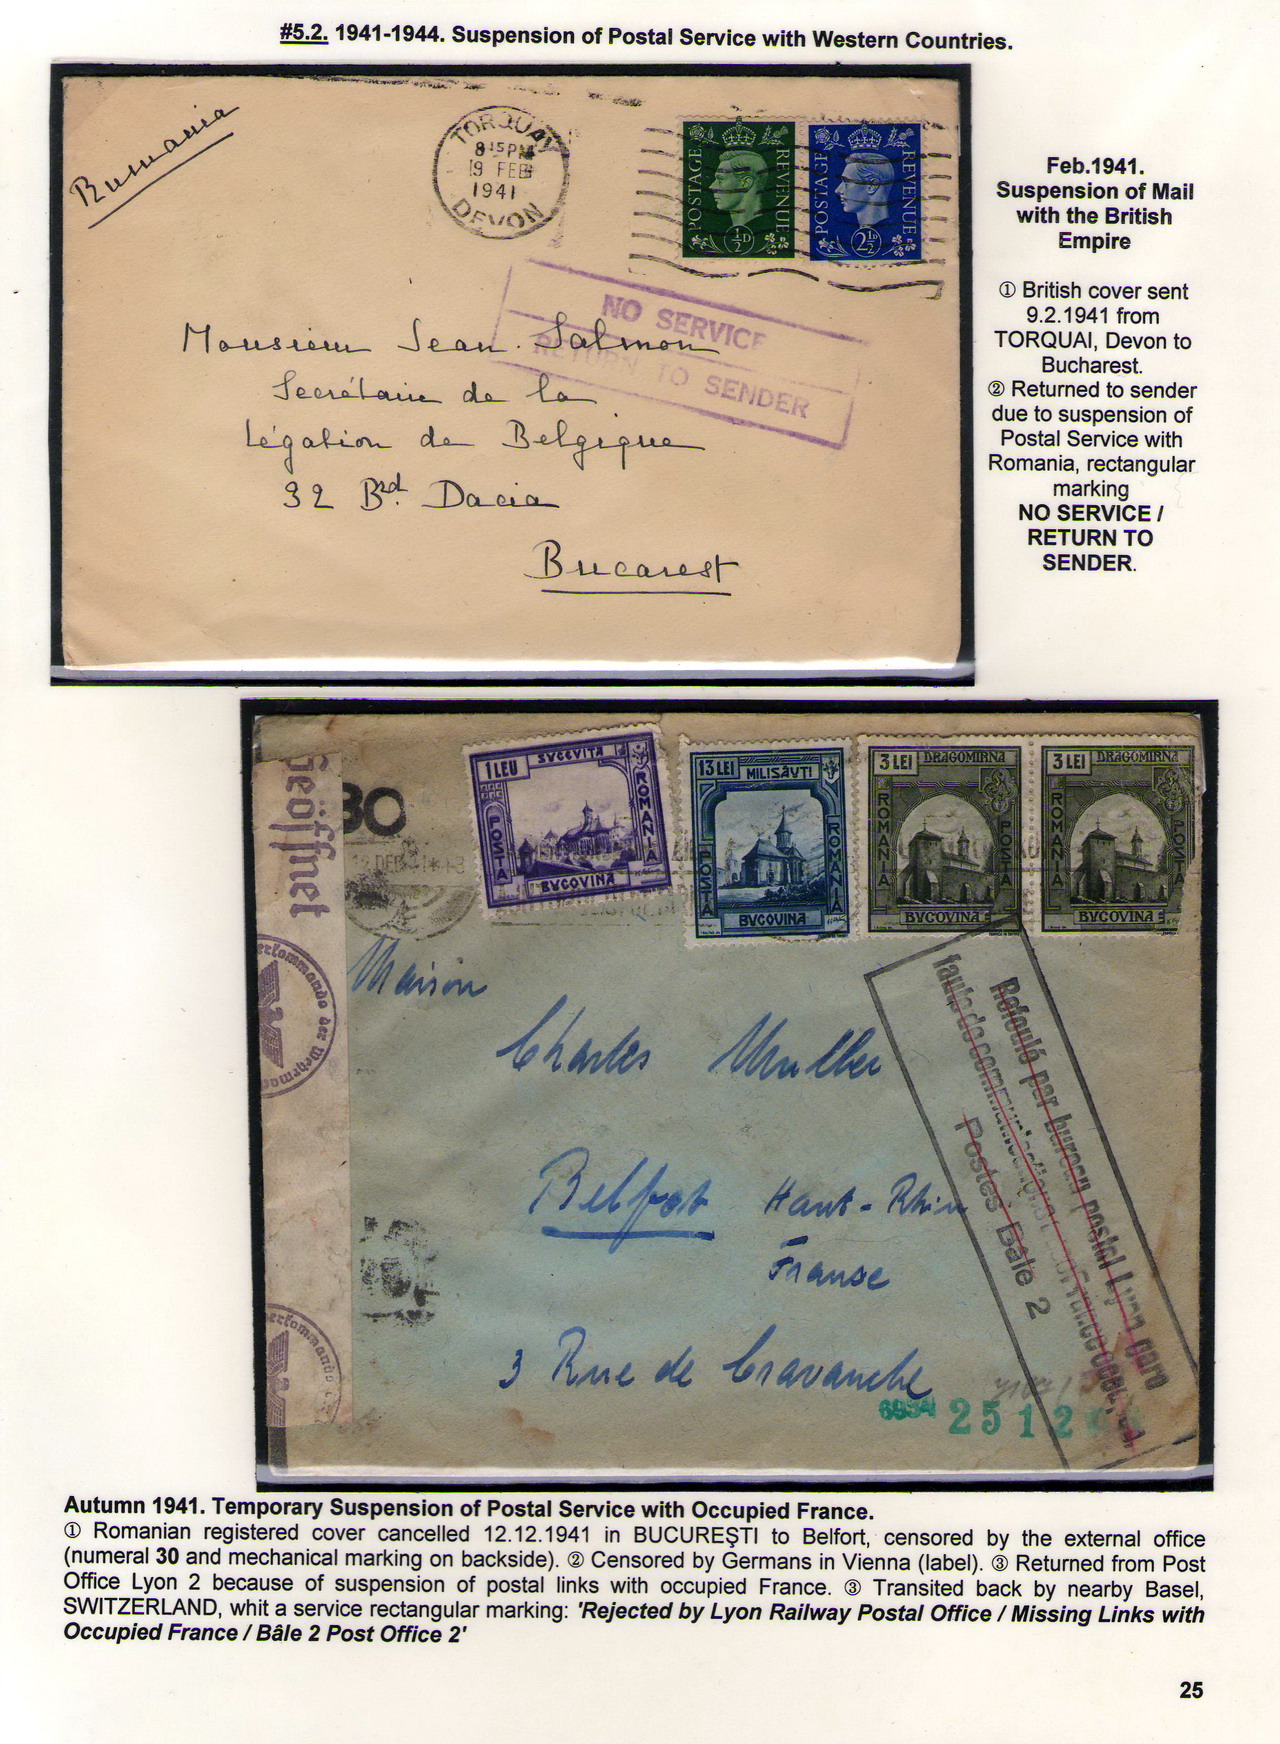 #5.2. 1941-1944. Suspension of Postal Service with Western Countries.
Rumania
TORQUAY
8 15 PM
9 FEB
1941
DEVON
POSTAGE REVENUE
½D
POSTAGE REVENUE
2½D
NO SERVICE
RETURN TO SENDER
Monsieur Jean Salmon
Secrétaire de la
Légation de Belgique
32 Bd. Dacia
Bucarest
Feb.1941.
Suspension of Mail
with the British
Empire
① British cover sent
9.2.1941 from
TORQUAI, Devon to
Bucharest.
② Returned to sender
due to suspension of
Postal Service with
Romania, rectangular
marking
NO SERVICE /
RETURN TO
SENDER.
Geöffnet
30
12 DEC 41
1 LEU SVCEVITA
POSTA ROMANIA
BVCOVINA
13 LEI MILISĂUTI
POSTA ROMANIA
BVCOVINA
3 LEI DRAGOMIRNA
ROMANIA POSTA
BVCOVINA
3 LEI DRAGOMIRNA
ROMANIA POSTA
BVCOVINA
Maison
Charles Muller
Belfort Haut-Rhin
Franse
3 Rue de Cravanche
Refoulé par bureau postal Lyon gare
faute de communications
Postes Bâle 2
25 12
Autumn 1941. Temporary Suspension of Postal Service with Occupied France.
① Romanian registered cover cancelled 12.12.1941 in BUCUREŞTI to Belfort, censored by the external office
(numeral 30 and mechanical marking on backside). ② Censored by Germans in Vienna (label). ③ Returned from Post
Office Lyon 2 because of suspension of postal links with occupied France. ③ Transited back by nearby Basel,
SWITZERLAND, whit a service rectangular marking: 'Rejected by Lyon Railway Postal Office / Missing Links with
Occupied France / Bâle 2 Post Office 2'
25